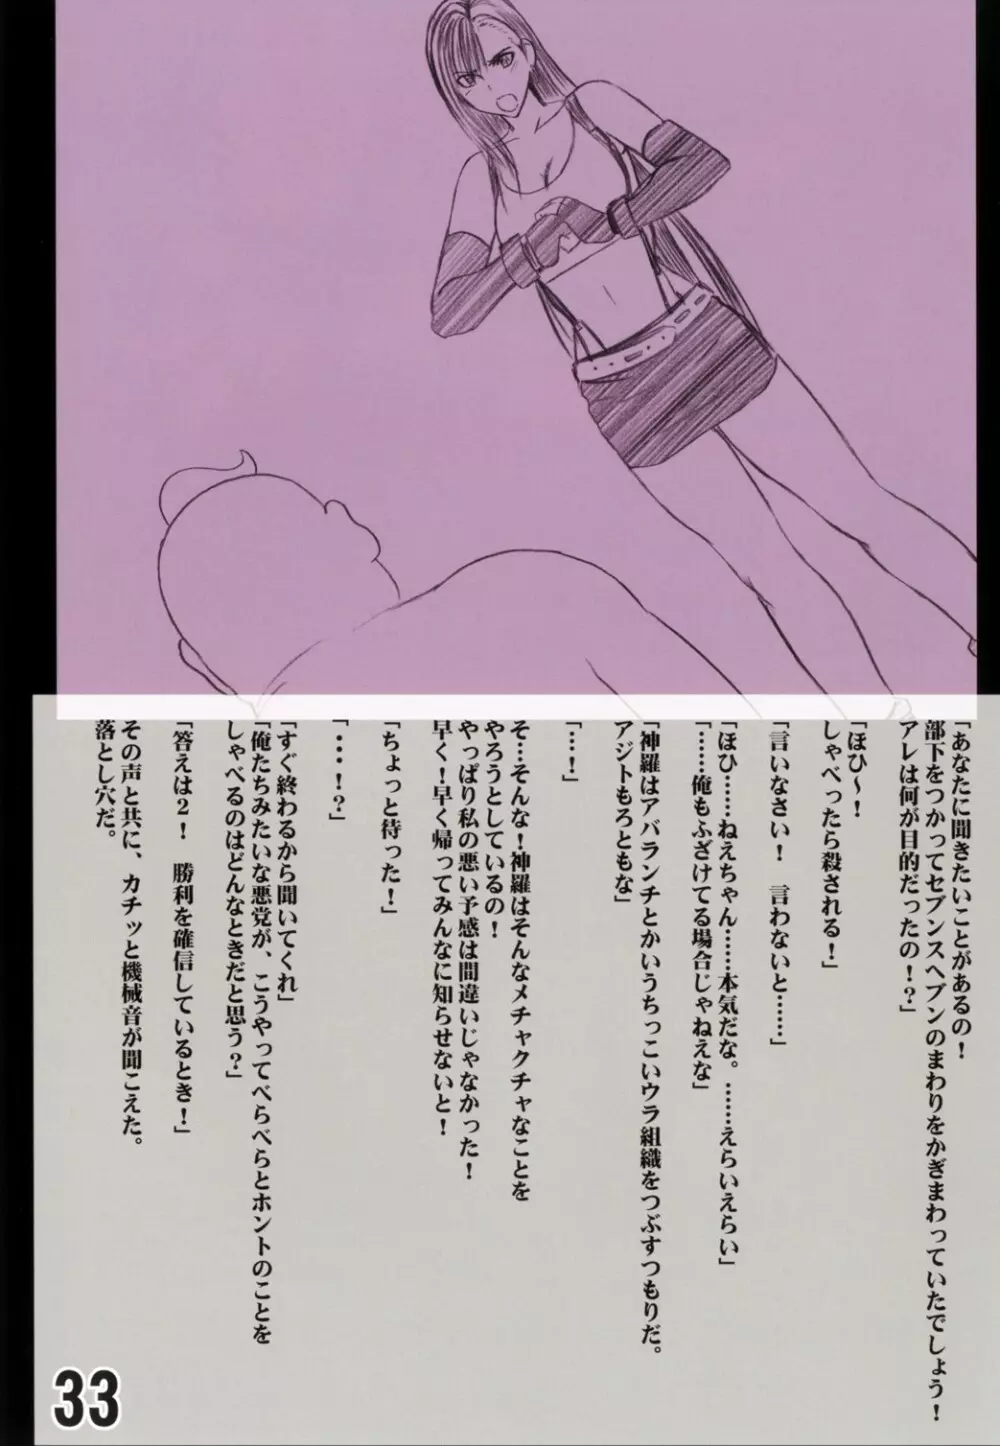 「あなたに聞きたいことがあるの！
部下をつかってセブンスヘブンのまわりをかぎまわっていたでしょう！
アレは何が目的だったの！？」
「ほひ～！
しゃべったら殺される！」
「言いなさい！　言わないと……」
「ほひ……ねえちゃん……本気だな。……えらいえらい」
「……俺もふざけてる場合じゃねえな」
「神羅はアバランチとかいうちっこいウラ組織をつぶすつもりだ。
アジトもろともな」
「…！」
そ…そんな！神羅はそんなメチャクチャなことを
やろうとしているの！
やっぱり私の悪い予感は間違いじゃなかった！
早く！早く帰ってみんなに知らせないと！
「ちょっと待った！」
「・・・！？」
「すぐ終わるから聞いてくれ」
「俺たちみたいな悪党が、こうやってべらべらとホントのことを
しゃべるのはどんなときだと思う？」
「答えは２！　勝利を確信しているとき！」
その声と共に、カチッと機械音が聞こえた。
落とし穴だ。
33